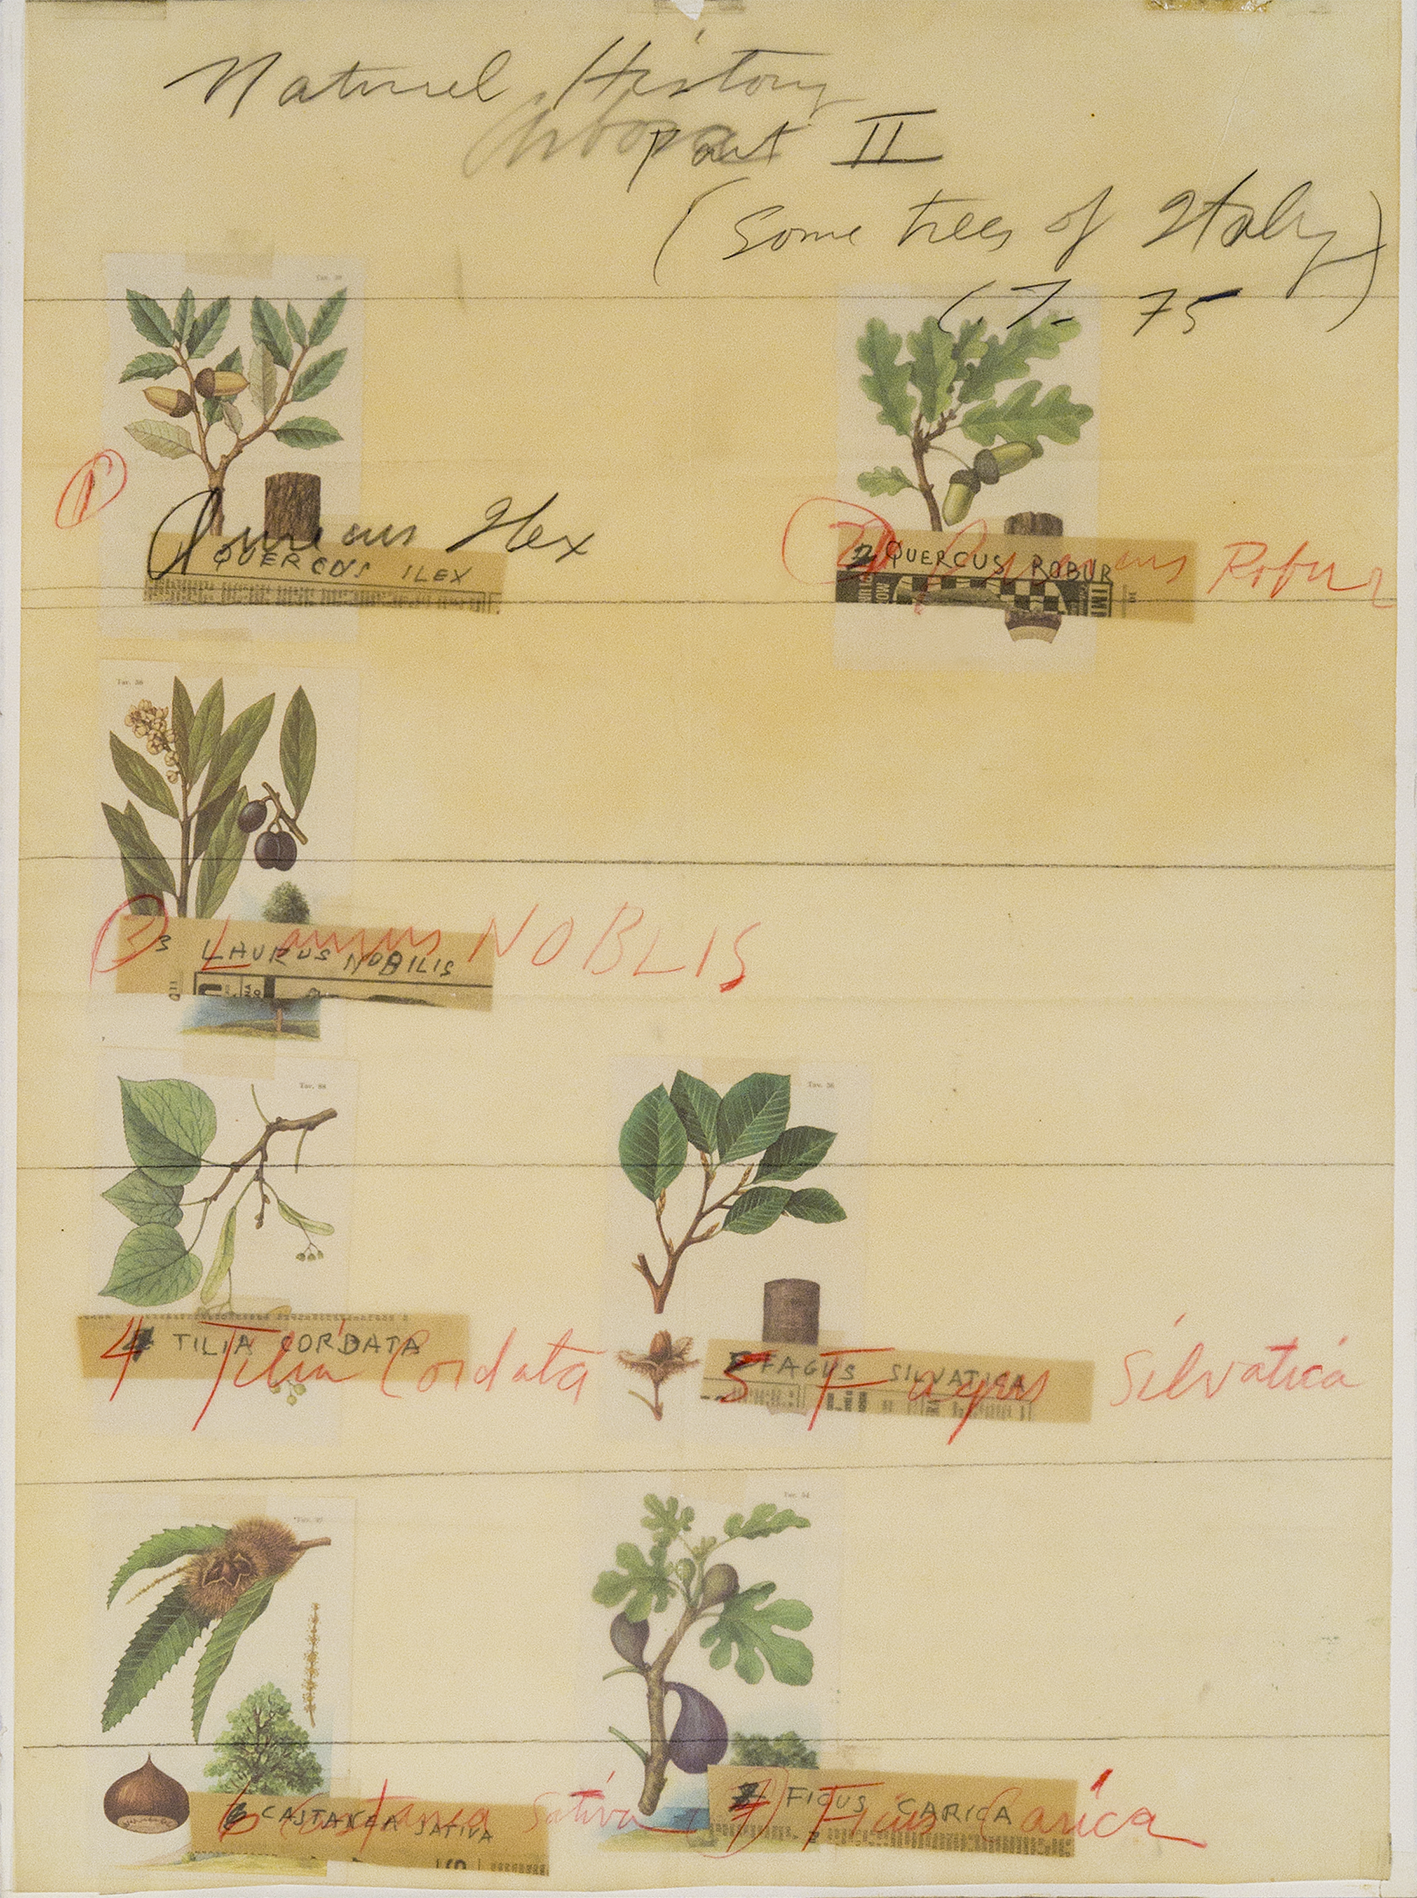 Natural History
Part II
(Some trees of Italy)
75
Tav. 39
1
Quercus Ilex
QUERCUS ILEX
2 QUERCUS ROBUR
Quercus Robur
3 LAURUS NOBILIS
3 Laurus NOBLIS
Tav.
4 TILIA CORDATA
4 Tilia Cordata
Tav.
FAGUS SILVATICA
5 Fagus Silvatica
6 CASTANEA SATIVA
6 Castanea Sativa
FICUS CARICA
7 Ficus Carica